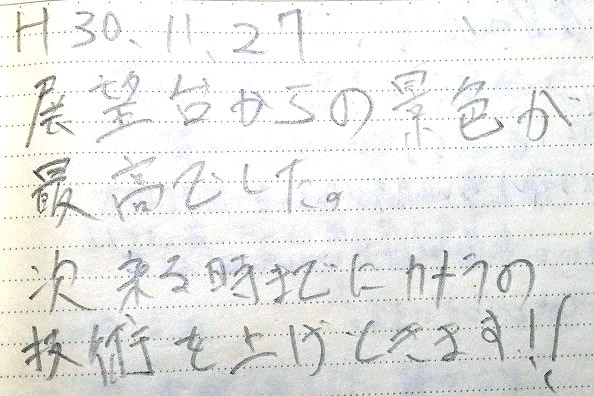 H30.11.27
展望台からの景色が
最高でした。
次来る時までにカメラの
技術を上げてきます!!